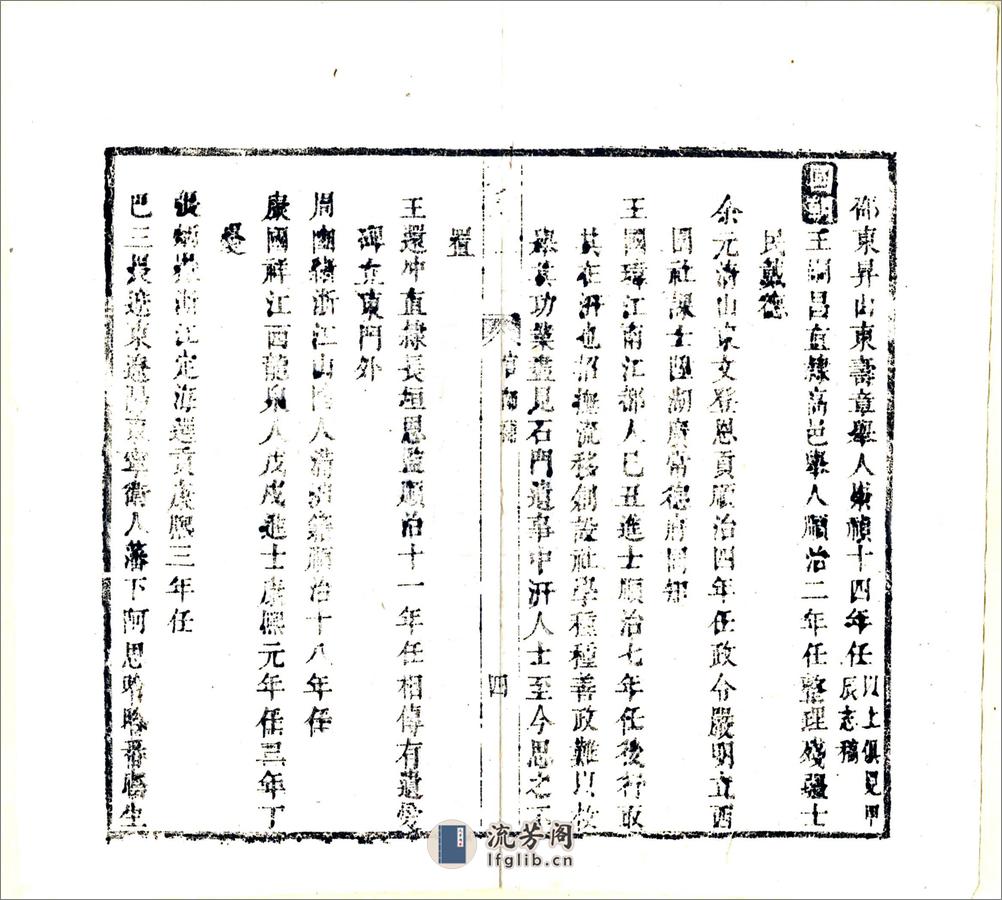 邵東昇山東壽章舉人崇禎十四年任以上俱見甲
辰志稿
國朝王嗣昌直隸高邑舉人順治二年任整理殘疆士
民戴德
余元清山東文登恩貢順治四年任政令嚴明立西
關社課士陞湖廣常德府同知
王國瑋江南江都人己丑進士順治七年任後行取
其在汧也招撫流移創設社學種種善政難以枚
舉其功業盡見石門遺事中汧人士至今思之不
置
四
王還冲直隸長垣恩監順治十一年任相傳有遺愛
碑立東門外
周 浙江山陰人清 籍順治十八年任
康國祥江西龍泉人戊戌進士康熙元年任三年丁
憂
張 浙江定海選貢康熙三年任
巴三 遼東遼陽東寧衛人藩下阿思哈哈番廕生
流芳阁
lfglib.cn